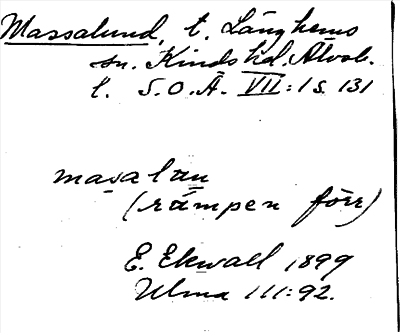 Massalund, t. Länghems
sn. Kinds hd. Älvsb.
l. S.O.Ä. VII:1 s. 131
masalan
(rämpen förr)
E. Ekwall 1899
Ulma 111:92.